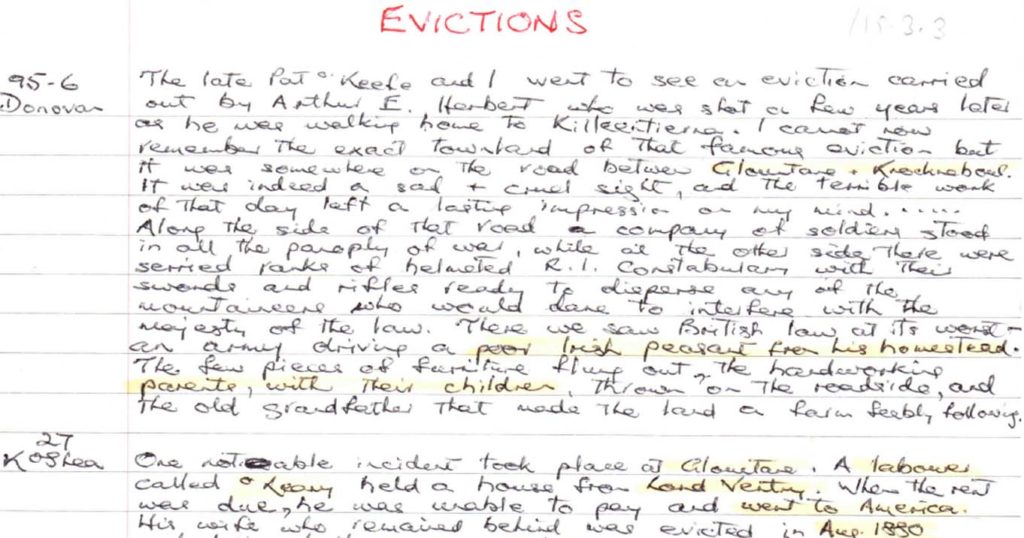 EVICTIONS
115.3.3
95-6
Donovan
The late Pat O'Keefe and I went to see an eviction carried
out by Arthur E. Herbert who was shot a few years later
as he was walking home to Killeentierna. I cannot now
remember the exact townland of that famous eviction but
it was somewhere on the road between Glountane + Knocknaboul.
It was indeed a sad + cruel sight, and the terrible work
of that day left a lasting impression on my mind......
Along the side of that road a company of soldiers stood
in all the panoply of war, while on the other side there were
serried ranks of helmeted R.I. Constabulary with their
swords and rifles ready to disperse any of the
mountaineers who would dare to interfere with the
majesty of the law. There we saw British law at its worst -
an army driving a poor Irish peasant from his homestead.
The few pieces of furniture flung out, the hardworking
parents, with their children, thrown on the roadside, and
the old grandfather that made the land a farm feebly following.
27
K O'Shea
One noticable incident took place at Glountane. A labourer
called O'Leary held a house from Lord Ventry. When the rent
was due, he was unable to pay and went to America.
His wife who remained behind was evicted in Aug. 1880